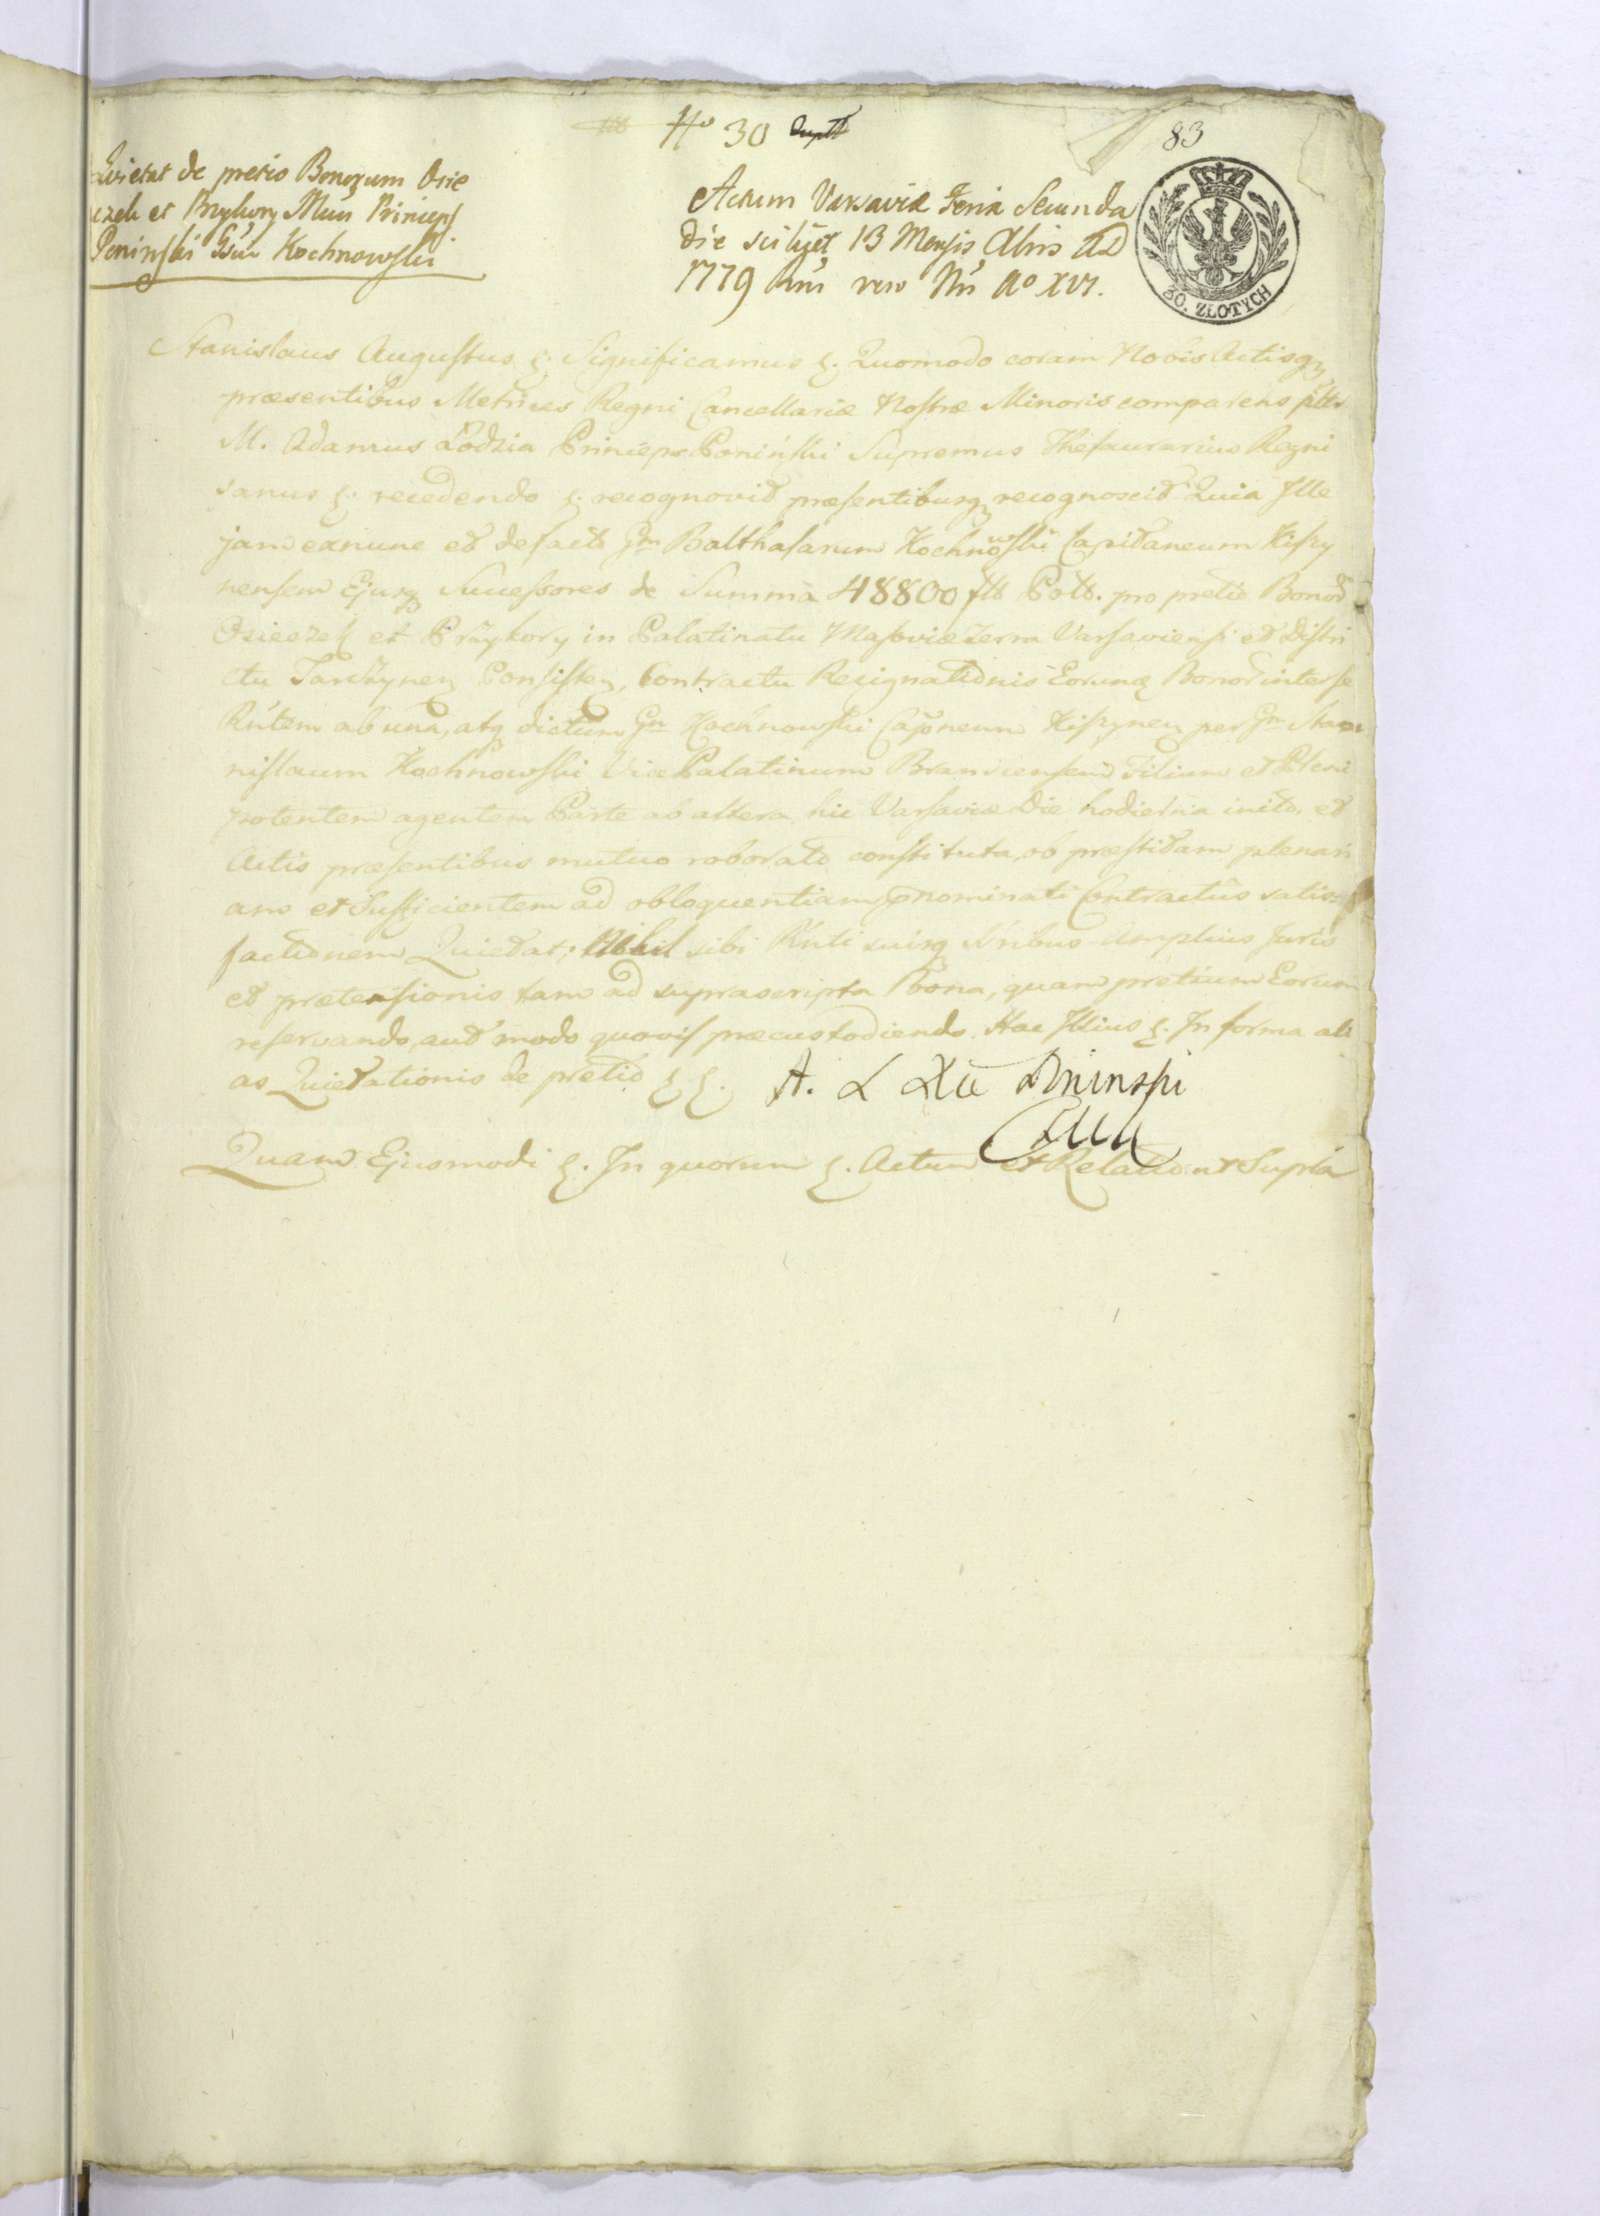 No 30
83
Quietat de pretio Bonorum Osie
czek et Przykory Mcus Princeps
Poninski Gsu Kochnowski
Actum Varsaviæ Feria Secunda
die scilicet 13 Mensis Xbris AD
1779 Rni vero Nri Ao XVI.
30. ZŁOTYCH
Stanislaus Augustus &. Significamus &. Quomodo coram Nobis Actisqz
præsentibus Metrices Regni Cancellariæ Nostræ Minoris comparens pltr
M. Adamus Łodzia Princeps Poniński Supremus Thesaurarius Regni
sanus &. recedendo &. recognovit præsentibusqz recognoscit Quia Ille
jam exnunc et defacto Gm Balthasarum Kochnowski Capitaneum Kiszy
nensem Ejusqz Successores de Summa 48800 flo Polo. pro pretio Bonor
Osieczek et Przykory in Palatinatu Masoviæ Terra Varsaviensi et Distri
ctu Tarczynen Consisten, Contractu Resignationis Eorunq Bonor inter se
Rntem ab una, atqz dictum Gm Kochnowski Capneum Kiszynen per Gm Sta
nislaum Kochnowski Vice Palatinum Filium et Pleni
potentem agentem Parte ab altera hic Varsaviæ Die hodierna inito, et
Actis præsentibus mutuo roborato constituta, ob præstitam plenari
am et Sufficientem ad obloquentiam pnominati Contractûs satis
factionem Quietat; Nihil sibi Rnti suisqz Sribus amplius Juris
et prætensionis tam ad suprascripta Bona, quam pretium Eorum
reservando, aut modo quovis præcustodiendo. Hac Illius &. In forma ali
as Quietationis de pretio &&. A. Ł Xże Poninski
Quam Ejusmodi &. In quorum &. Actum et Relatio: ut Supra